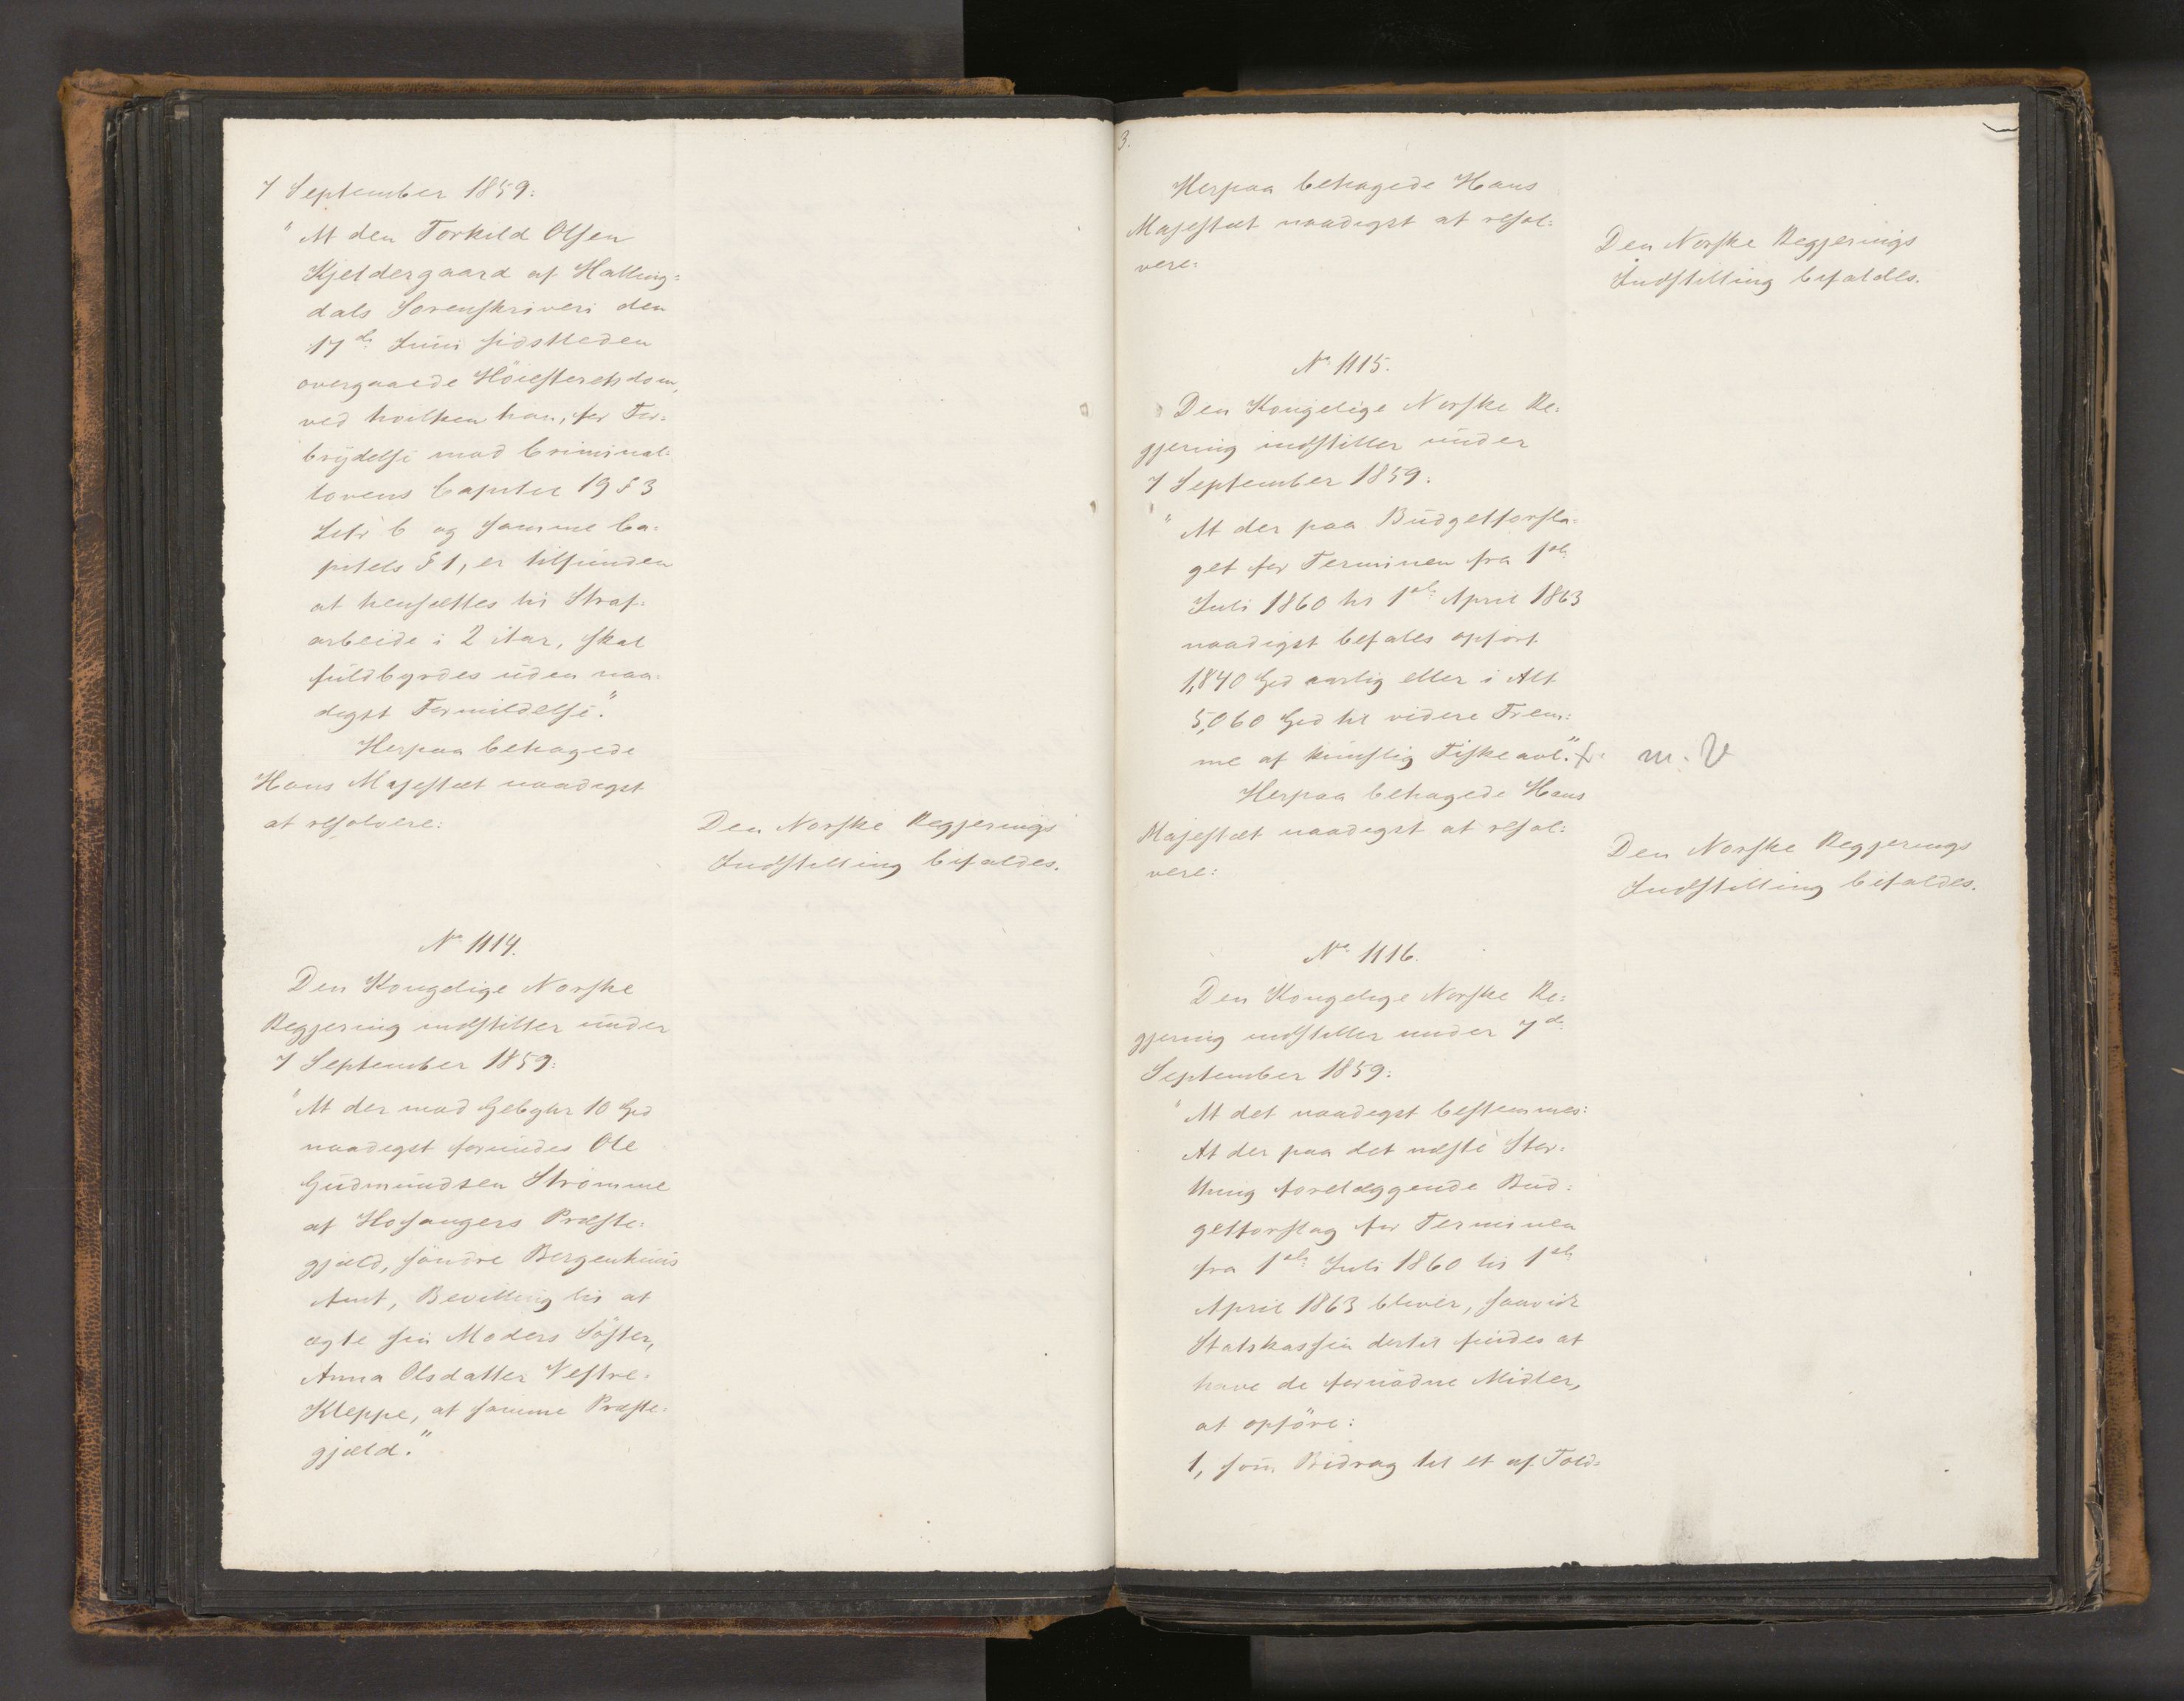 7 September 1859:
"At den Torkild Olsen
Kjeldergaard af Halling=
dals Sorenskriveri den
17de Juni sidstleden
overgaaede Höiesteretsdom,
ved hvilken han, for For=
brydelse mod Criminal=
lovens Capitel 19 § 3
Litr b og samme Ca=
pitels § 1, er tilfunden
at hensættes til Straf=
arbeide i 2 Aar, skal
fuldbyrdes uden naa=
digst Formildelse."
Herpaa behagede
Hans Majestæt naadigst
at resolvere:
Den Norske Regjerings
Indstilling bifaldes.
No 1114.
Den Kongelige Norske
Regjering indstiller under
7 September 1859:
"At der mod Gebyhr 10 Spd
naadigst forundes Ole
Gudmundsen Strömme
af Hosangers Præste=
gjeld, söndre Bergenhuus
Amt, Bevilling til at
ægte sin Moders Söster,
Anna Olsdatter Vestre=
Kleppe, af samme Præste=
gjæld."
3.
Herpaa behagede Hans
Majestæt naadigst at resol=
vere:
Den Norske Regjerings
Indstilling bifaldes.
No 1115.
Den Kongelige Norske Re=
gjering indstiller under
7 September 1859:
"At der paa Budgetforsla=
get for Terminen fra 1ste
Juli 1860 til 1ste April 1863
naadigst befales opfört
1,840 Spd aarlig eller i Alt
5,060 Spd til videre Frem=
me af kunstig Fiskeavl."
m. V
Herpaa behagede Hans
Majestæt naadigst at resol=
vere:
Den Norske Regjerings
Indstilling bifaldes.
No 1116.
Den Kongelige Norske Re=
gjering indstiller under 7de
September 1859:
"At det naadigst bestemmes:
At der paa det næste Stor=
thing forelæggende Bud=
getforslag for Terminen
fra 1ste Juli 1860 til 1ste
April 1863 bliver, saavidt
Statskassen dertil findes at
have de fornödne Midler,
at opföre:
1, som Bidrag til et af Told=